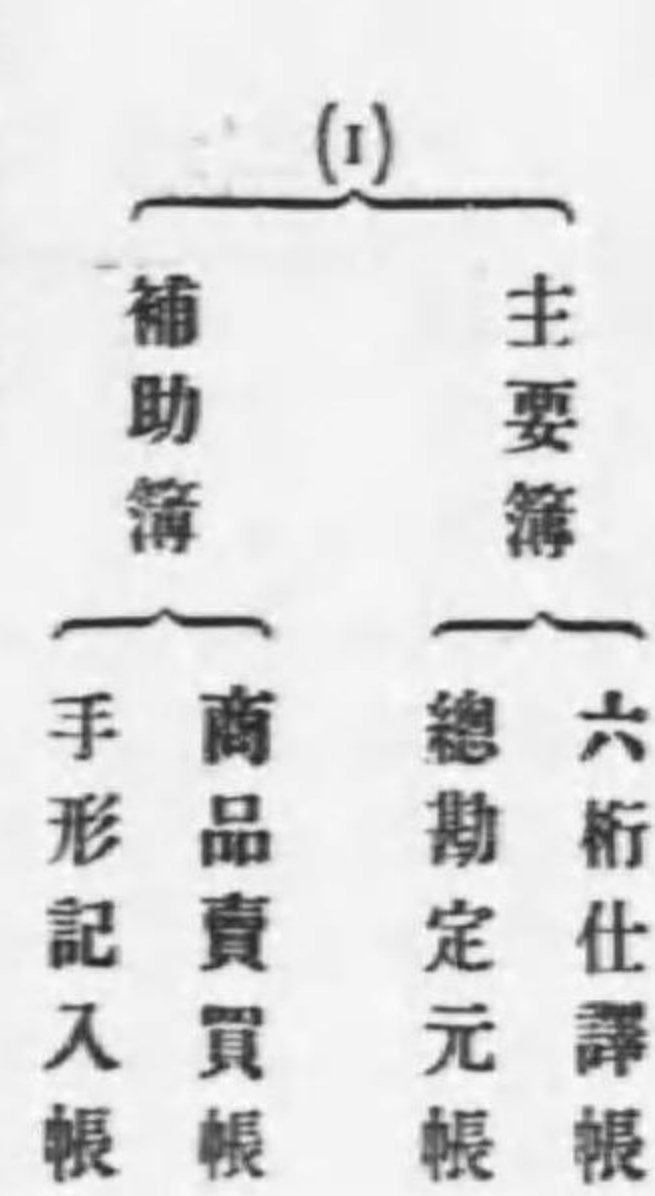 (I)
主要簿
六桁仕譯帳
總勘定元帳
補助簿
商品賣買帳
手形記入帳